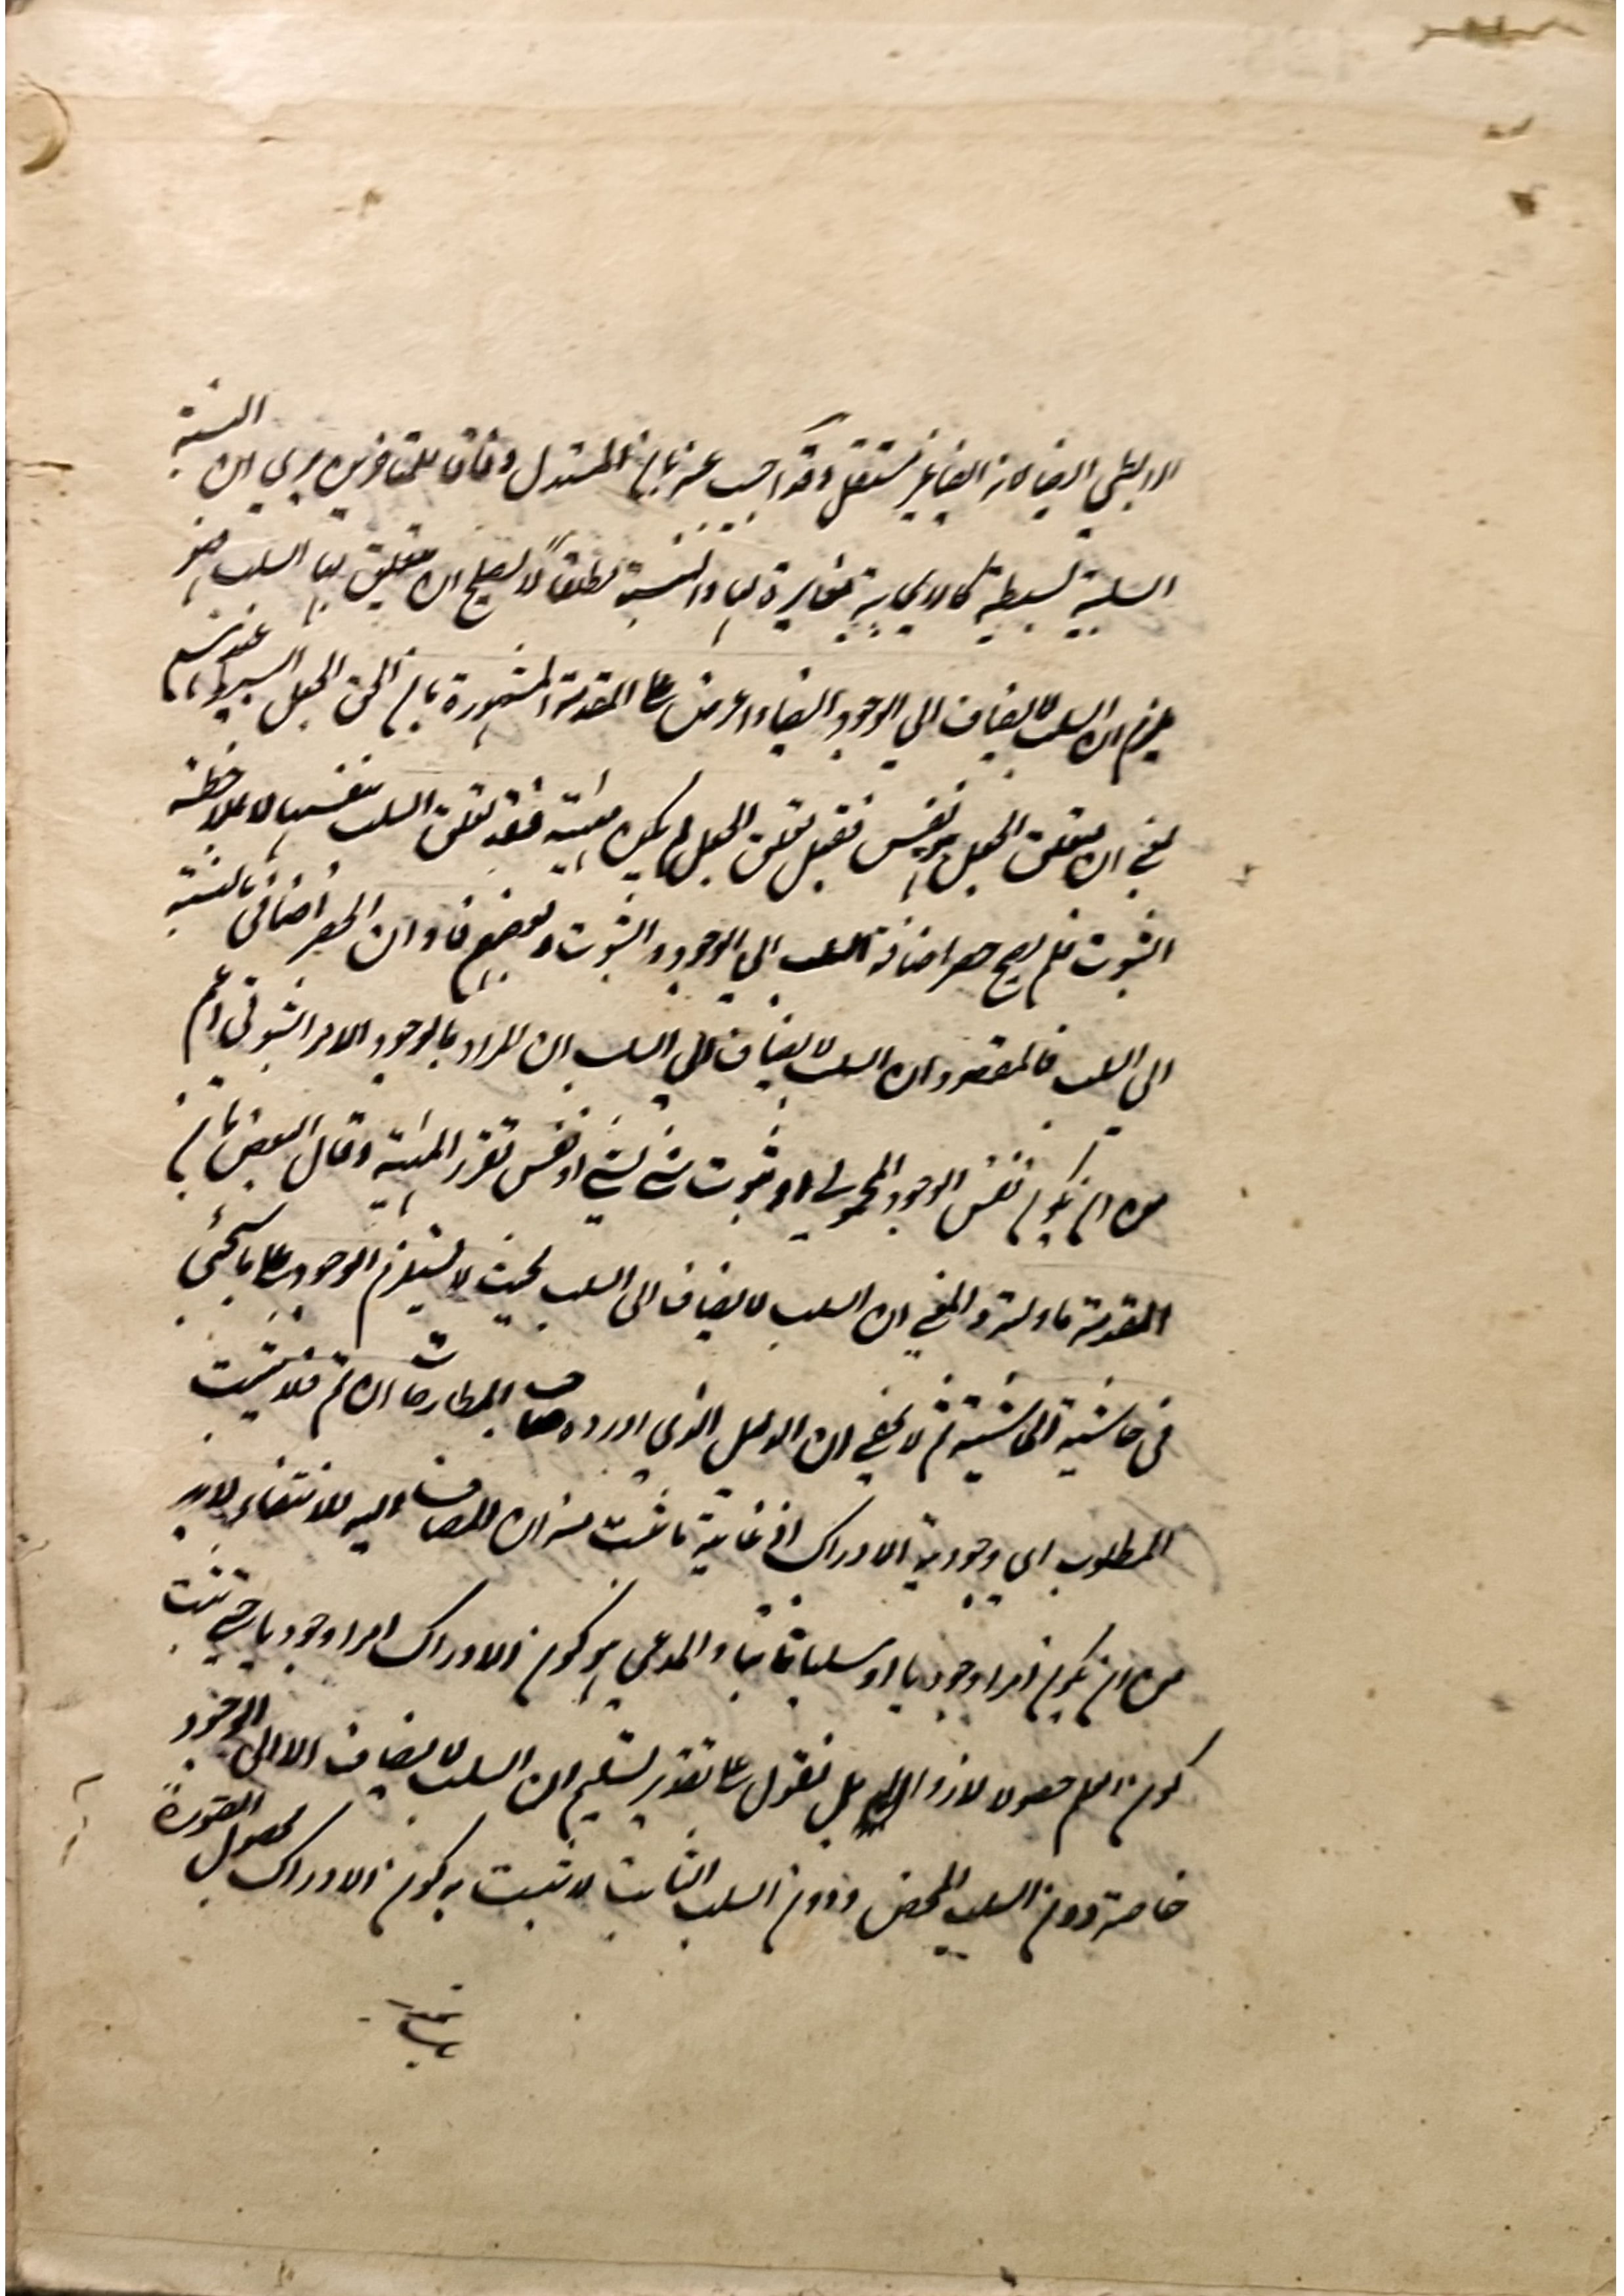 الرابطي ايضا لانه ايضا غير مستقل وقد اجيب عنه بان المستدل وفاقا للمتاخرين يرى ان النسبة
السلبية بسيطة كالايجابية مغايرة لها والنسبة مطلقا لا يصلح ان يتعلق بها السلب فهو
يلزم ان السلب لا يضاف الى الوجود ايضا واعترض على المقدمة المشهورة بان الحق الجعل البسيط
يعني ان متعلق الجعل هو نفس فقبل تعلق الجعل لم يكن مهية فقد تعلق السلب بنفسها لا بملاحظة
الثبوت فلم يصح حصر اضافة السلب الى الوجود والثبوت وان الحصر اضافي بالنسبة
الى السلب فالمقصود ان السلب لا يضاف الى السلب ان المراد بالوجود الامر الثبوتي اعم
من ان يكون نفس الوجود المحمولي او ثبوت شيء لشيء او نفس تقرر المهية وقال البعض بان
المقدمة ماولة والمعنى ان السلب لا يضاف الى السلب بحيث لا يستلزم الوجود على ما سيجئ
في حاشية الحاشية ثم لا يخفى ان الدليل الذي اورده صاحب المطارحات ان تم فلا يثبت
المطلوب اي وجودية الادراك اذ غاية ما ثبت منه ان المضاف اليه للانتفاء لا بد
من ان يكون امرا وجوديا او سلبا ثابتا والمدعى هو كون الادراك امرا وجوديا حتى يثبت
كون العلم حصولا لا زوالا بل نقول على تقدير تسليم ان السلب لا يضاف الا الى الوجود
خاصة دون السلب المحض ودون السلب الثابت لا يثبت به كون الادراك بحصول الصورة